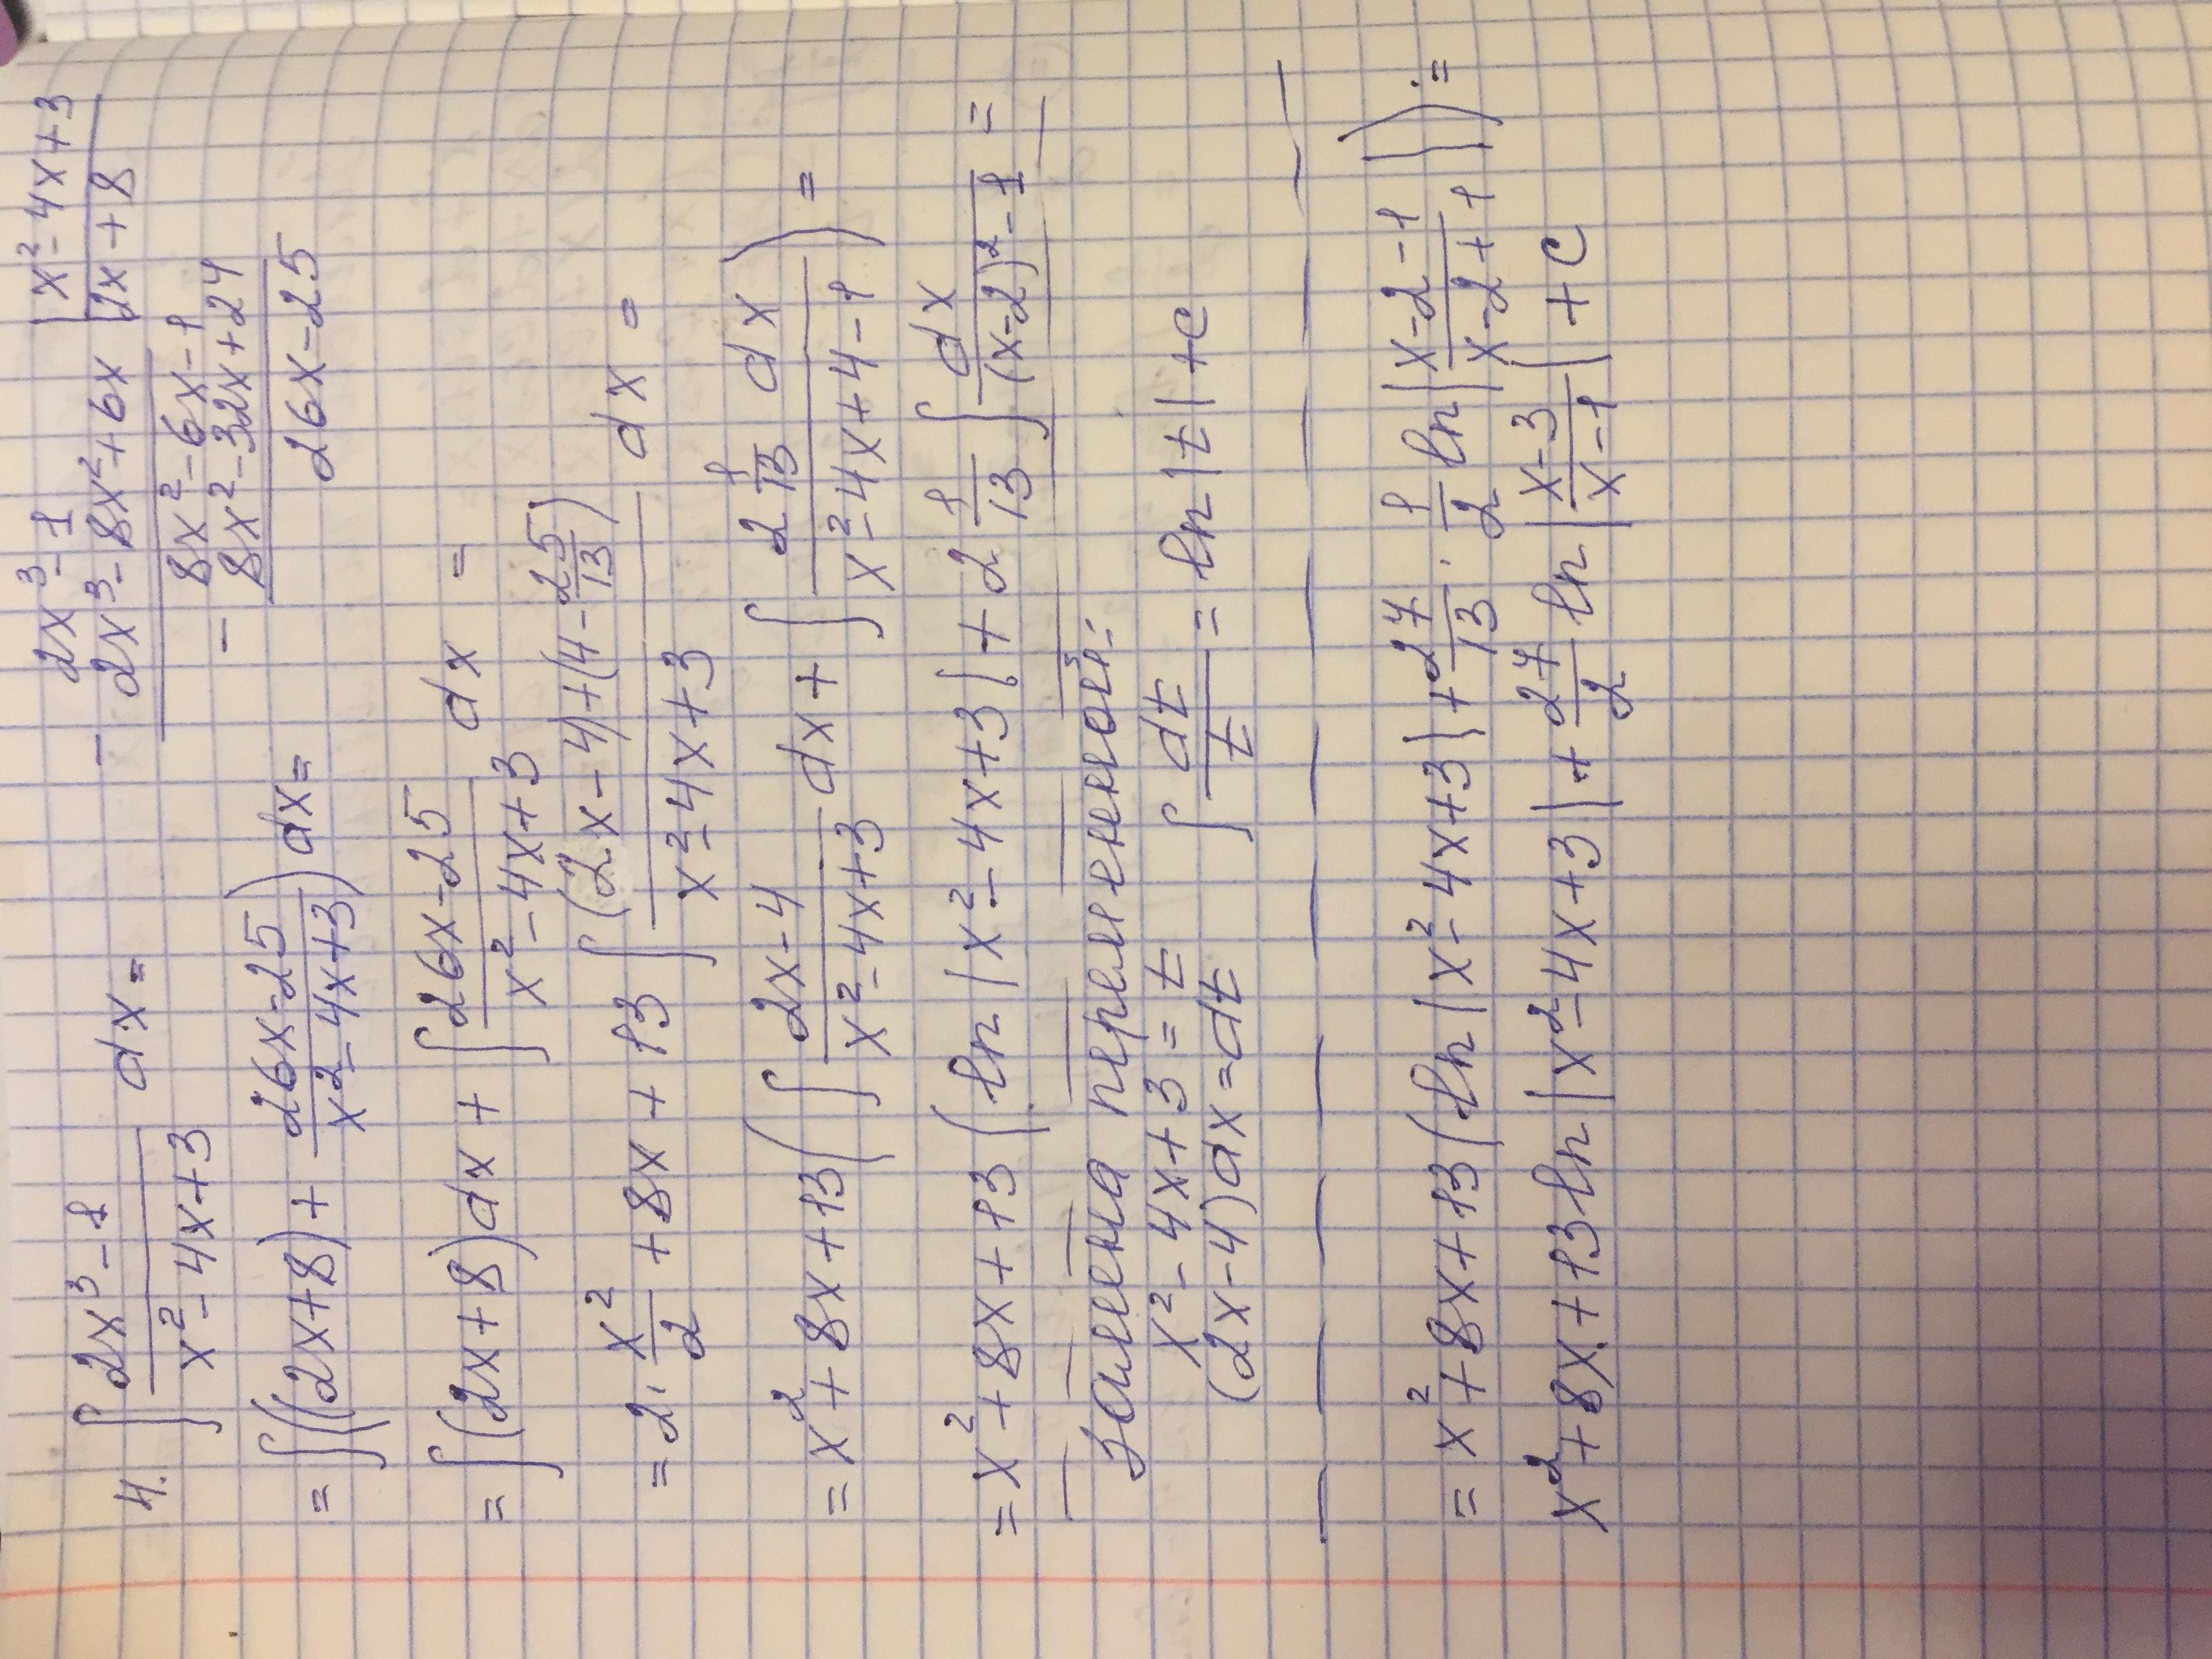 4. ∫ (2x³-1)/(x²-4x+3) dx =
2x³-1 | x²-4x+3
- 2x³-8x²+6x | 2x+8
8x²-6x-1
- 8x²-32x+24
26x-25
= ∫((2x+8)+ (26x-25)/(x²-4x+3)) dx =
= ∫(2x+8)dx + ∫ (26x-25)/(x²-4x+3) dx =
= 2·x²/2 + 8x + 13 ∫ ((2x-4)+(4-25/13))/(x²-4x+3) dx =
= x²+8x+13(∫ (2x-4)/(x²-4x+3) dx + ∫ (2 1/13 dx)/(x²-4x+4-1)) =
= x²+8x+13(ln|x²-4x+3| + 2 1/13 ∫ dx/((x-2)²-1) =
Замена переменной:
x²-4x+3=t ∫ dt/t = ln|t|+c
(2x-4)dx=dt
= x²+8x+13(ln|x²-4x+3|+27/13·1/2 ln|(x-2-1)/(x-2+1)|) =
x²+8x+13ln|x²-4x+3|+27/2 ln|(x-3)/(x-1)|+C